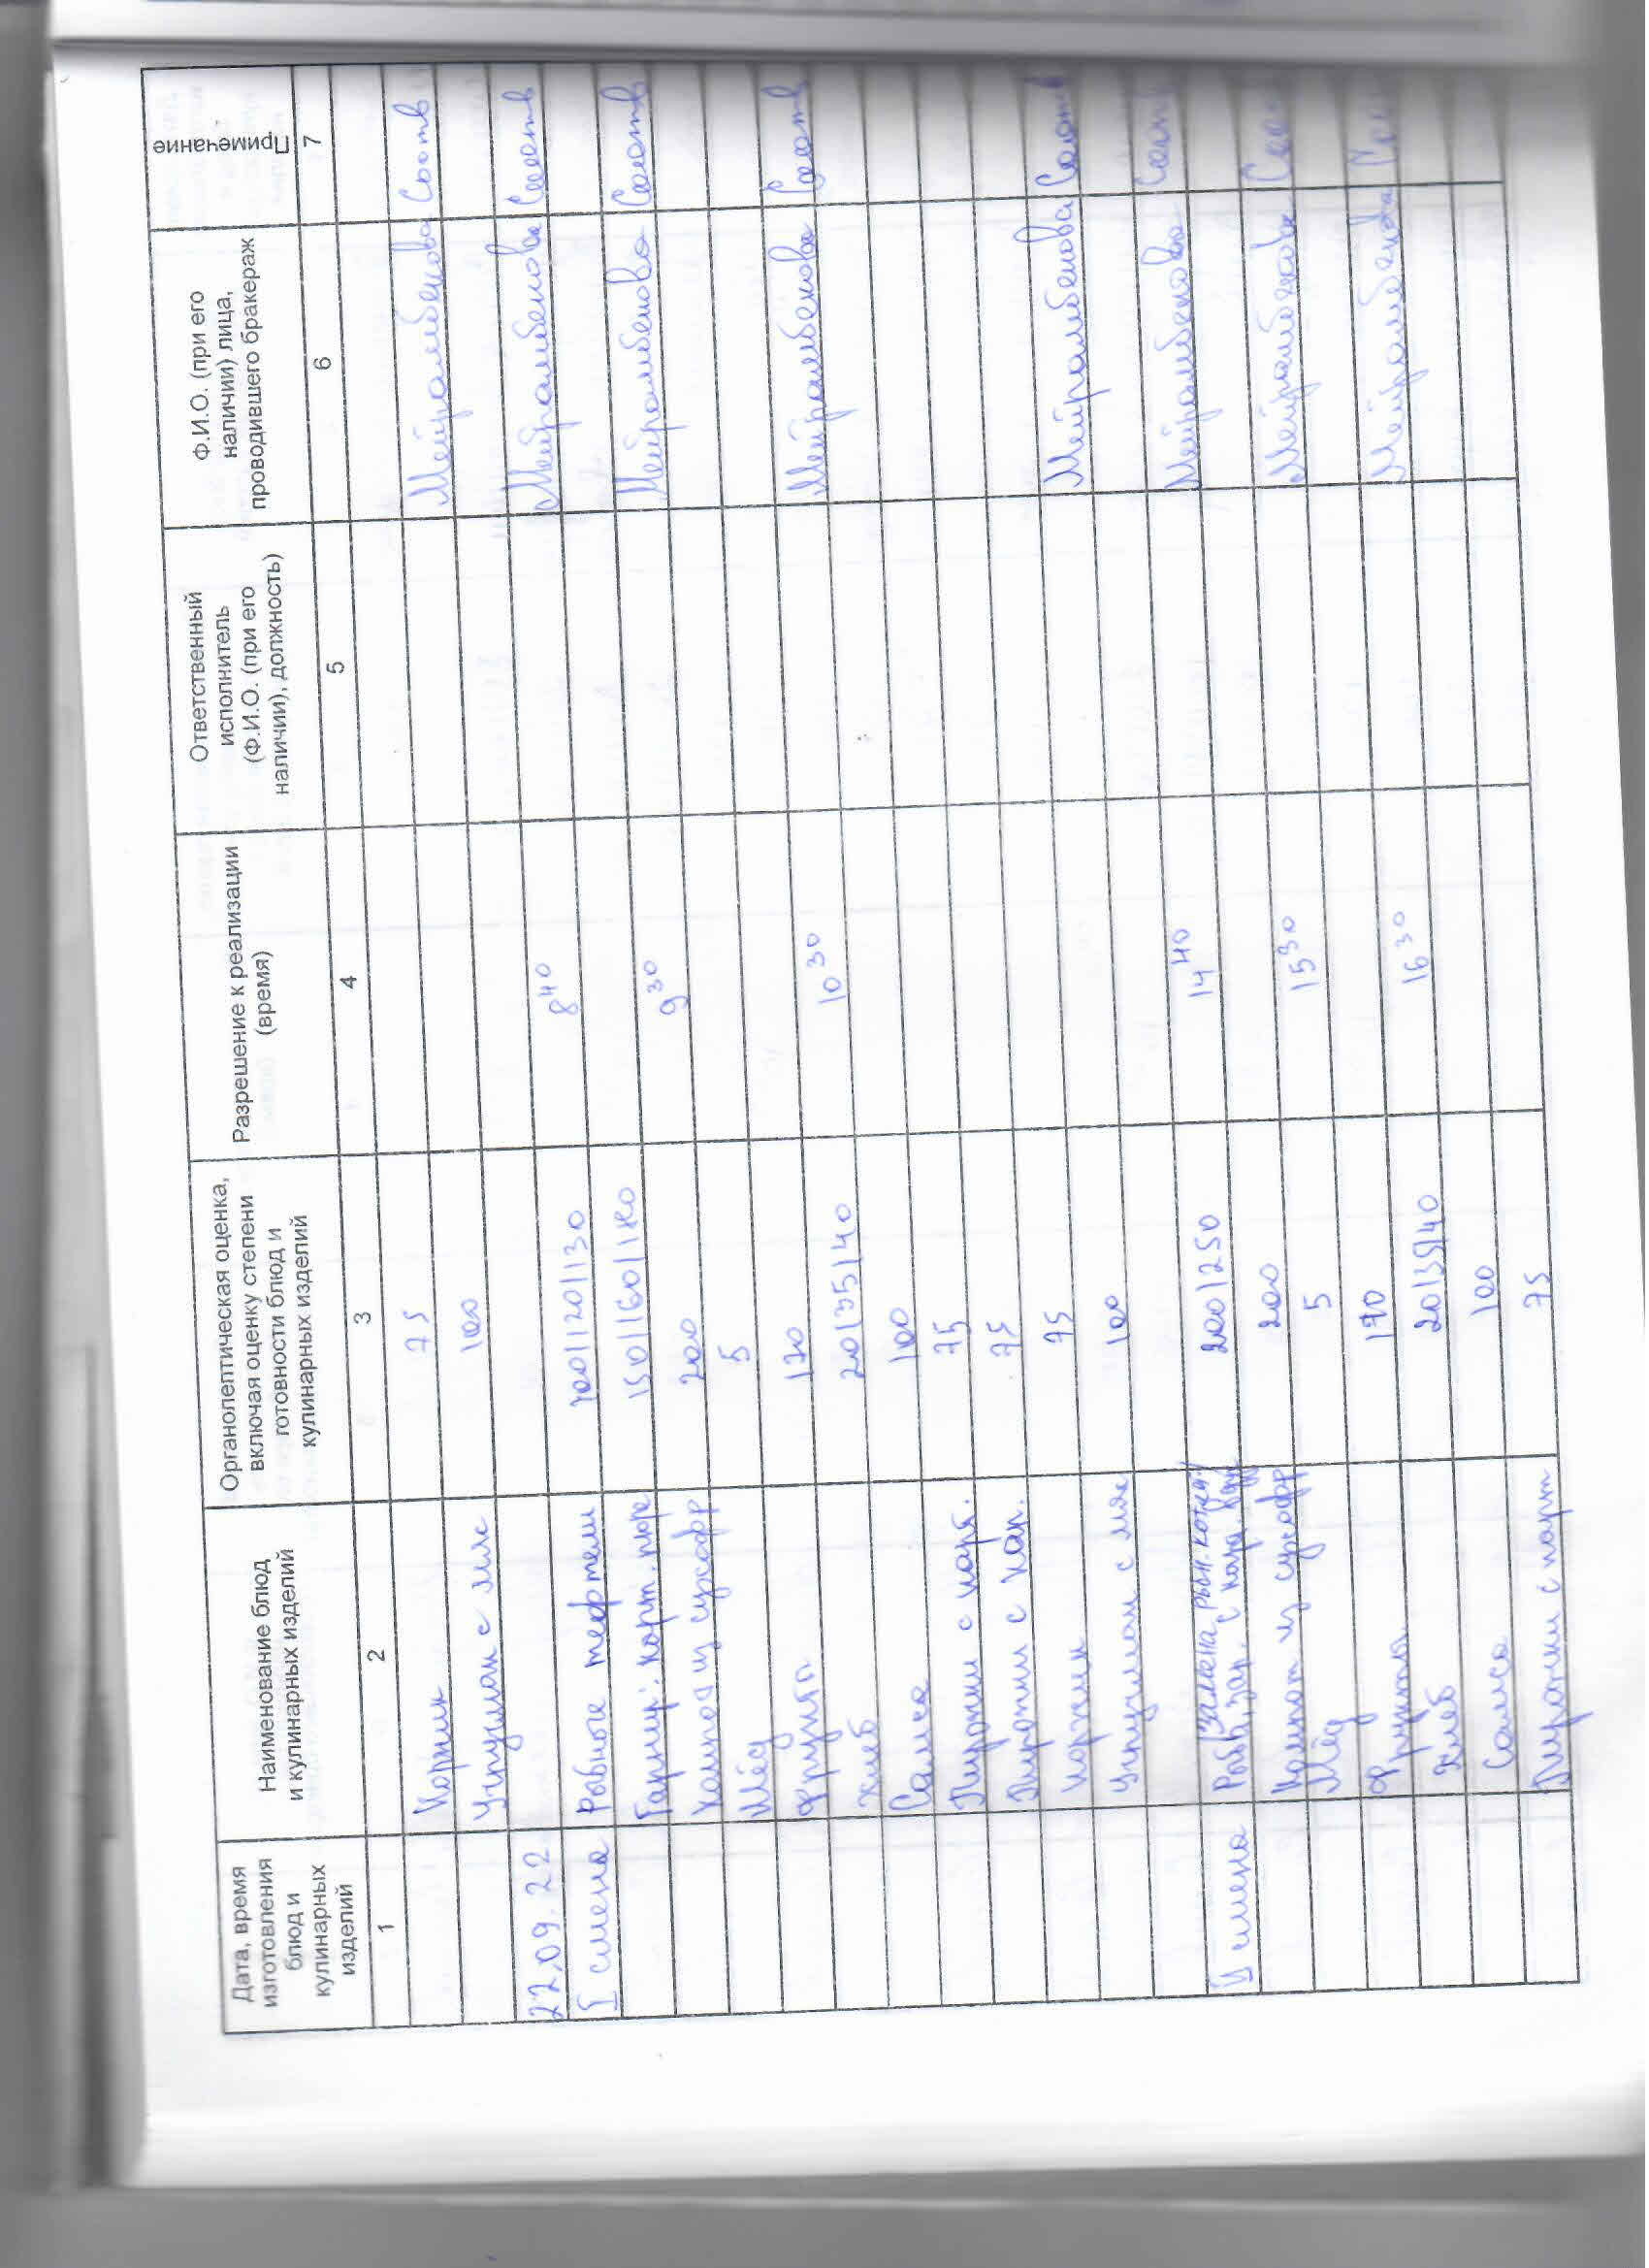 Дата, время изготовления блюд и кулинарных изделий
Наименование блюд и кулинарных изделий
Органолептическая оценка, включая оценку степени готовности блюд и кулинарных изделий
Разрешение к реализации (время)
Ответственный исполнитель (Ф.И.О. (при его наличии), должность)
Ф.И.О. (при его наличии) лица, проводившего бракераж
Примечание
1 2 3 4 5 6 7
Коржик 75 Мейрамбекова Соотв
Учпучмак с мяс 100
22.09.22 Мейрамбекова Соотв
I смена Рыбные тефтели 100/120/130 8 40
Гарнир: карт. пюре 150/160/180 Мейрамбекова Соотв
Компот из сухофр 200 9 30
Мёд 5
Фрукты 170 Мейрамбекова Соотв
Хлеб 20/35/40 10 30
Самса 100
Пирожки с карт. 75
Пирожки с кап. 75
Коржик 75 Мейрамбекова Соотв
Учпучмак с мяс 100
Мейрамбекова Соотв
II смена (замена рыб. котлет) 200/250 14 40
Компот из сухофр 200 Мейрамбекова
Мёд 5 15 30
Фрукты 170 Мейрамбекова
Хлеб 20/35/40 16 30
Самса 100
Пирожки с карт 75